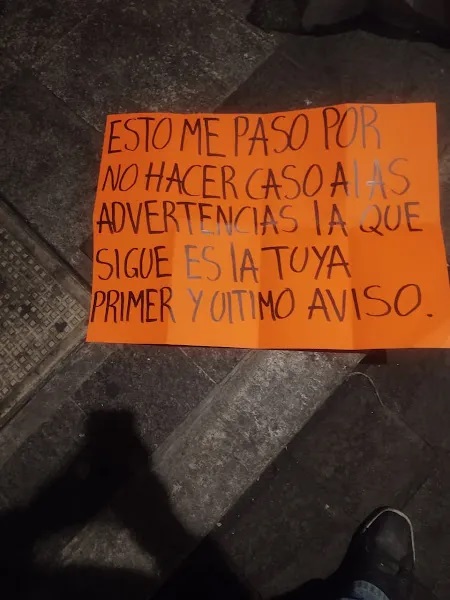 ESTO ME PASO POR
NO HACER CASO A LAS
ADVERTENCIAS LA QUE
SIGUE ES LA TUYA
PRIMER Y ULTIMO AVISO.